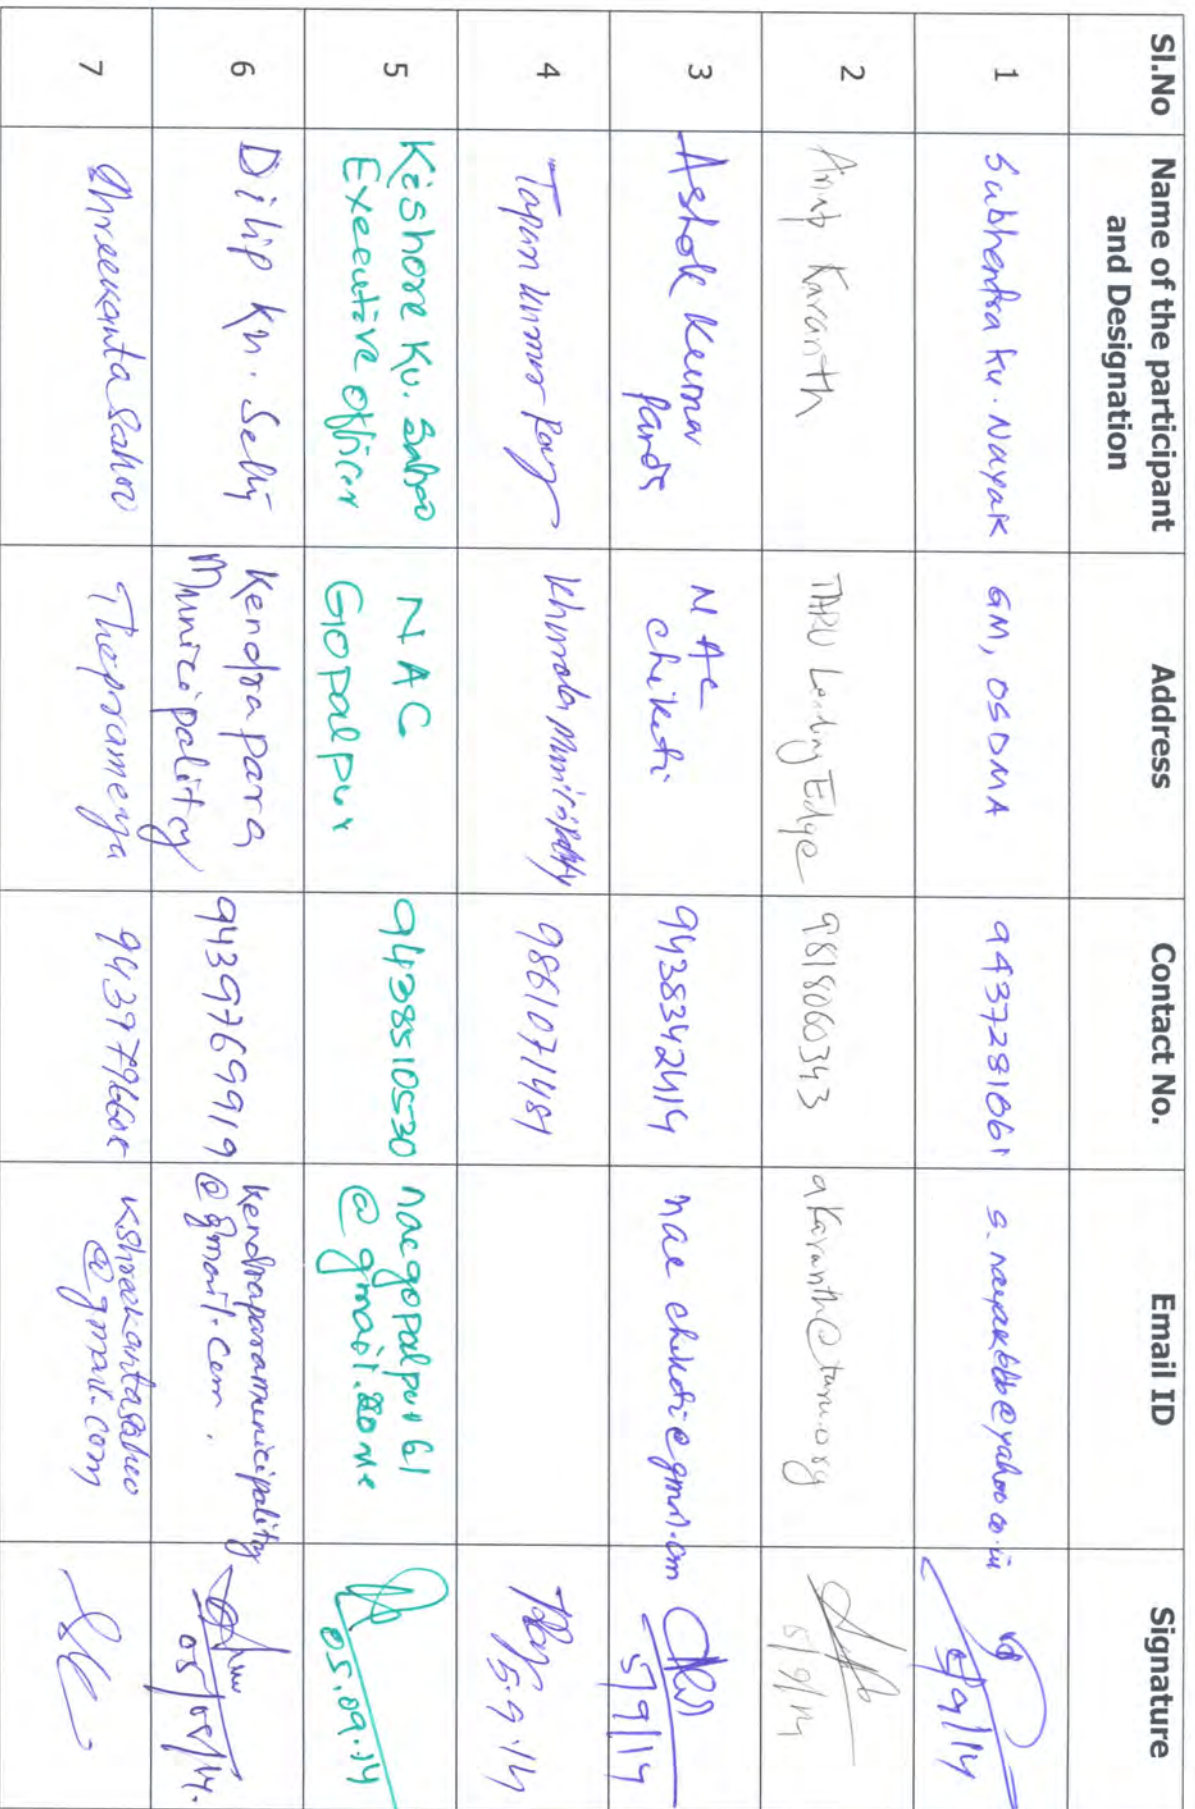 Sl.No
Name of the participant
and Designation
Address
Contact No.
Email ID
Signature
1
Subhendra Ku. Nayak
GM, OSDMA
9437281061
s_nayakbbb@yahoo.co.in
5/9/14
2
Anup Karanth
TARU Leading Edge
9818060343
akaranth@taru.org
5/9/14
3
Ashok Kumar
Panda
NAC
Chikiti
9438342414
5/9/14
4
Tapan Kumar Roy
Municipality
9861071487
5.9.14
5
Kishore Ku. Sahoo
Executive Officer
NAC
Gopalpur
9438510530
nacgopalpur61
05.09.14
6
Dilip Kn. Sethi
Kendrapara
Municipality
9439769919
Kendraparamunicipality
@gmail.com.
05/09/14.
7
Shreekanta Sahoo
Kshreekantasahoo
@gmail.com